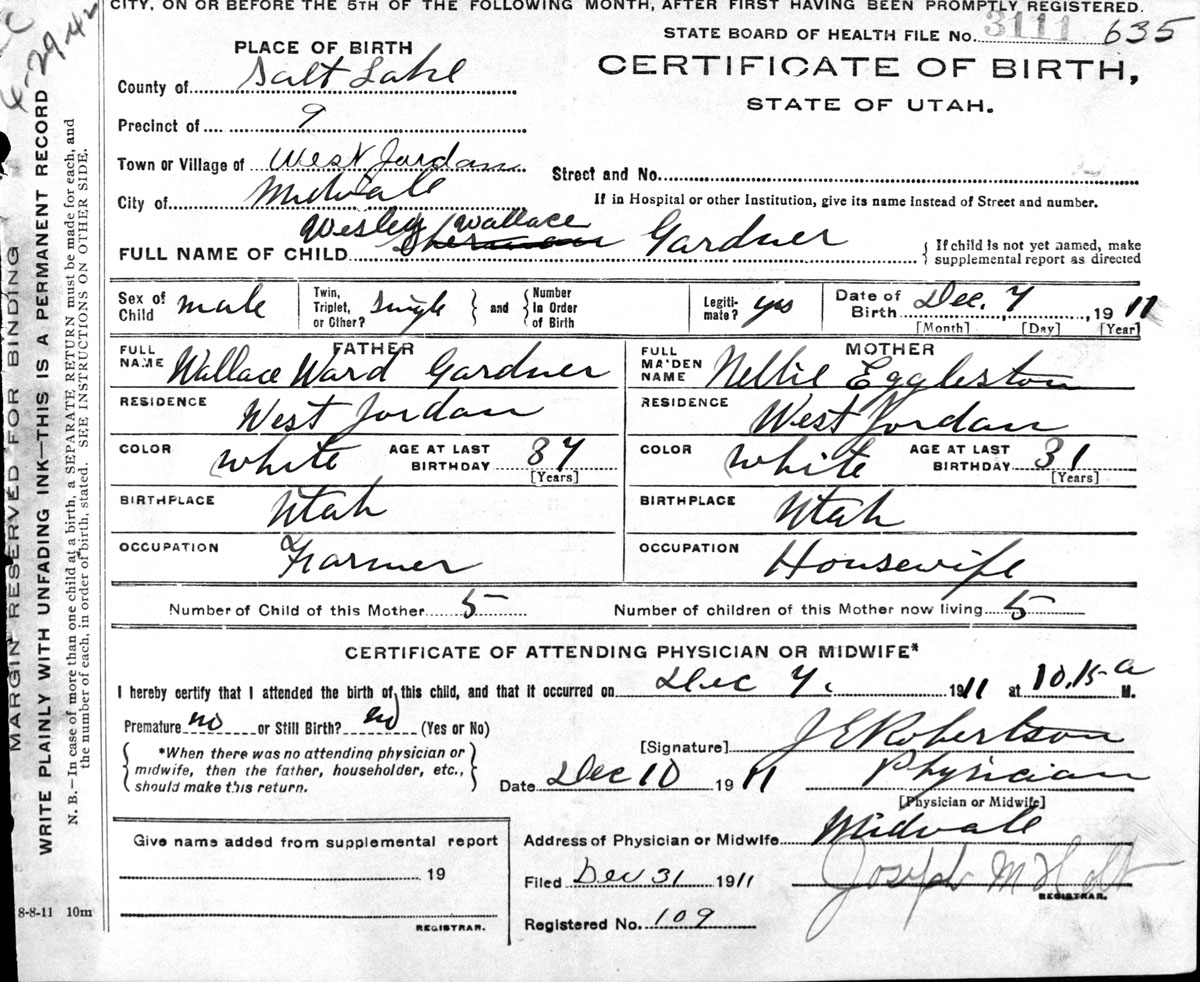 CITY, ON OR BEFORE THE 5TH OF THE FOLLOWING MONTH, AFTER FIRST HAVING BEEN PROMPTLY REGISTERED.
STATE BOARD OF HEALTH FILE No. 3111 635
4-29-42
PLACE OF BIRTH
CERTIFICATE OF BIRTH,
STATE OF UTAH.
County of Salt Lake
Precinct of 9
Town or Village of West Jordan
Street and No.
City of Midvale
If in Hospital or other Institution, give its name instead of Street and number.
Wesley Wallace
FULL NAME OF CHILD Sherman Gardner
If child is not yet named, make supplemental report as directed
Sex of Child male Twin, Triplet, or Other? Single and Number In Order of Birth Legiti-mate? yes Date of Birth Dec. 7, 1911
[Month] [Day] [Year]
FATHER
MOTHER
FULL NAME Wallace Ward Gardner
FULL MAIDEN NAME Nellie Eggleston
RESIDENCE West Jordan
RESIDENCE West Jordan
COLOR white AGE AT LAST BIRTHDAY 37 [Years]
COLOR white AGE AT LAST BIRTHDAY 31 [Years]
BIRTHPLACE Utah
BIRTHPLACE Utah
OCCUPATION Farmer
OCCUPATION Housewife
Number of Child of this Mother 5 Number of children of this Mother now living 5
CERTIFICATE OF ATTENDING PHYSICIAN OR MIDWIFE*
I hereby certify that I attended the birth of this child, and that it occurred on Dec 7, 1911 at 10.15 a M.
Premature no or Still Birth? no (Yes or No)
*When there was no attending physician or
midwife, then the father, householder, etc.,
should make this return.
[Signature] J E Robertson
Date Dec 10 1911 Physician
[Physician or Midwife]
Give name added from supplemental report
19
REGISTRAR.
Address of Physician or Midwife Midvale
Filed Dec 31 1911 Joseph M Holt
REGISTRAR.
Registered No. 109
8-8-11 10m
MARGIN RESERVED FOR BINDING
WRITE PLAINLY WITH UNFADING INK—THIS IS A PERMANENT RECORD
N. B.—In case of more than one child at a birth, a SEPARATE RETURN must be made for each, and
the number of each, in order of birth, stated. SEE INSTRUCTIONS ON OTHER SIDE.